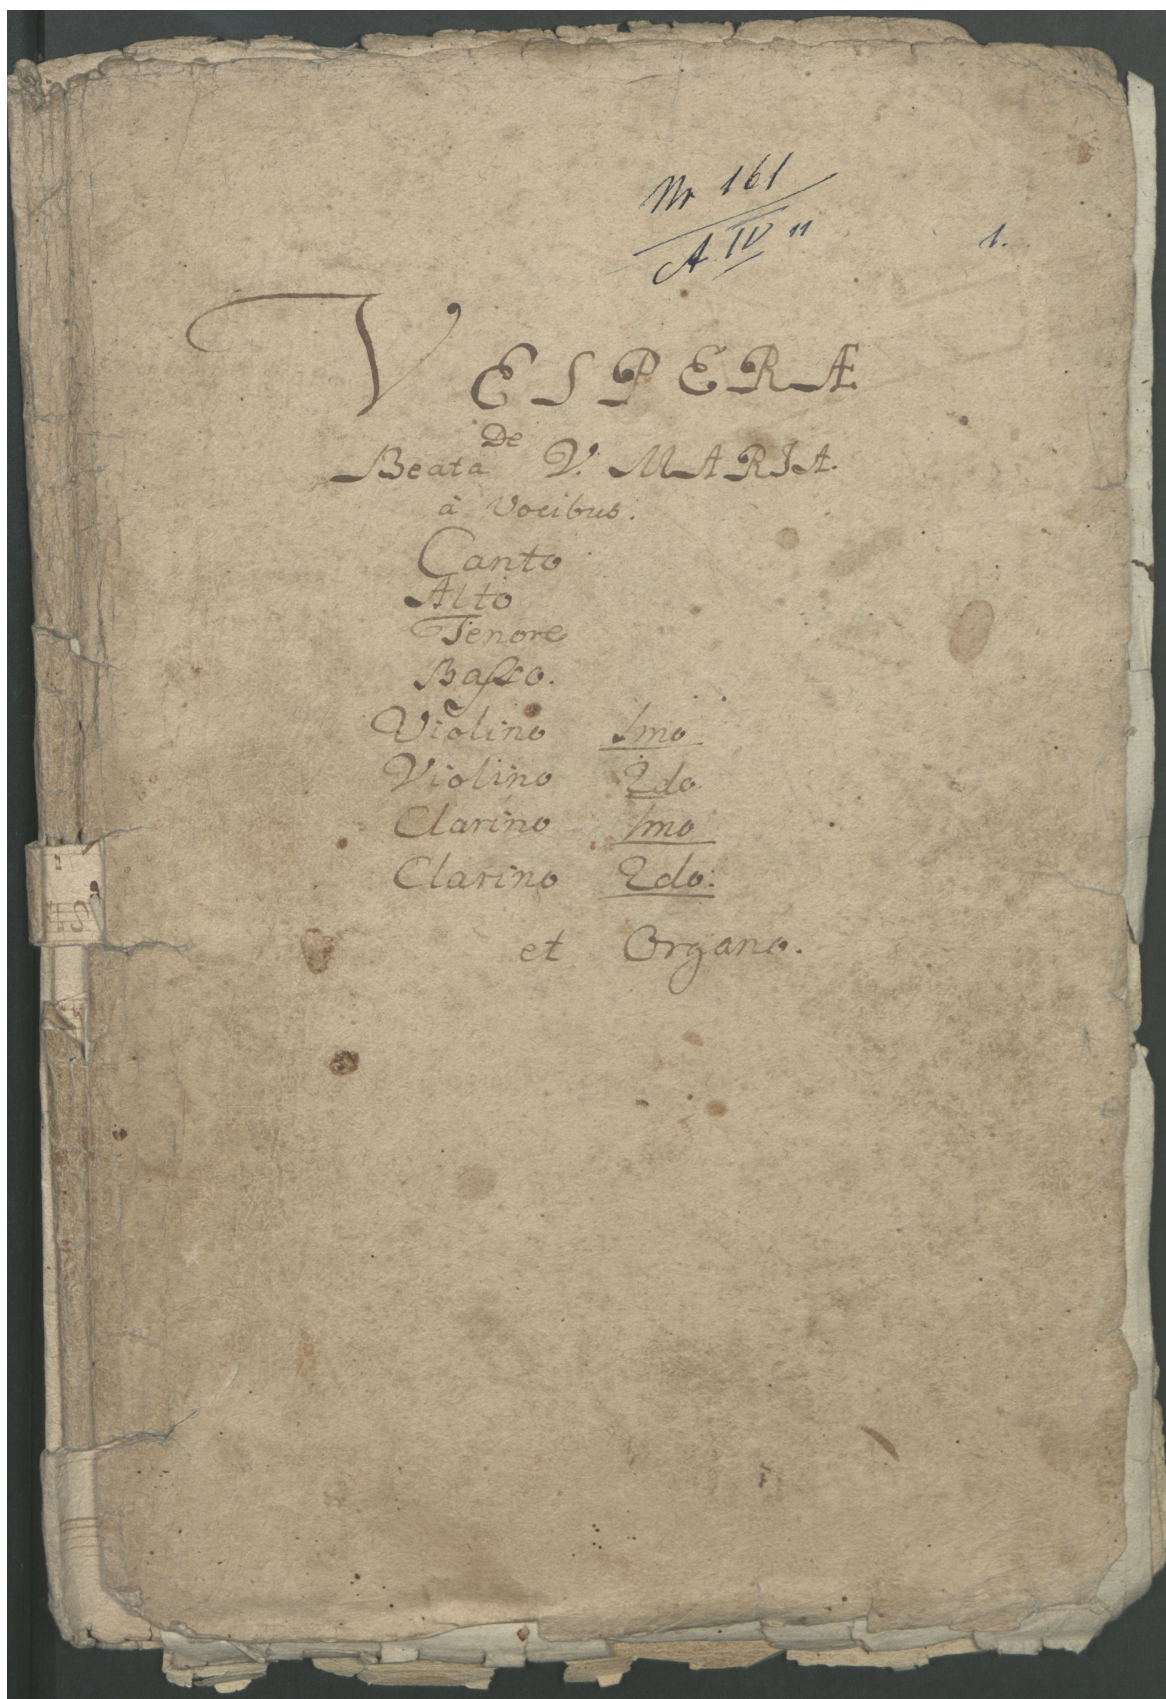 Nr 161
A IV "
1.
VESPERÆ
De
Beata V. MARIA.
à Vocibus.
Canto
Alto
Tenore
Baſso.
Violino 1mo
Violino 2do
Clarino 1mo
Clarino 2do:
et Organo.